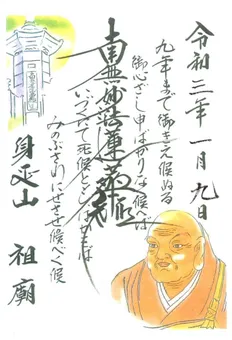 令和三年一月九日
九年まで御きえ候ぬる
御心ざし申ばかりなく候へば
南無妙法蓮華経
いづくにて死候とも はかをば
みのぶさわにせさせ候べく候
身延山 祖廟